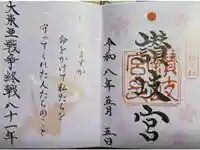 讚岐宮
令和八年五月五日
命をかけて私たちを
守ってくれた人たちのこと
大東亜戦争終戦八十一年